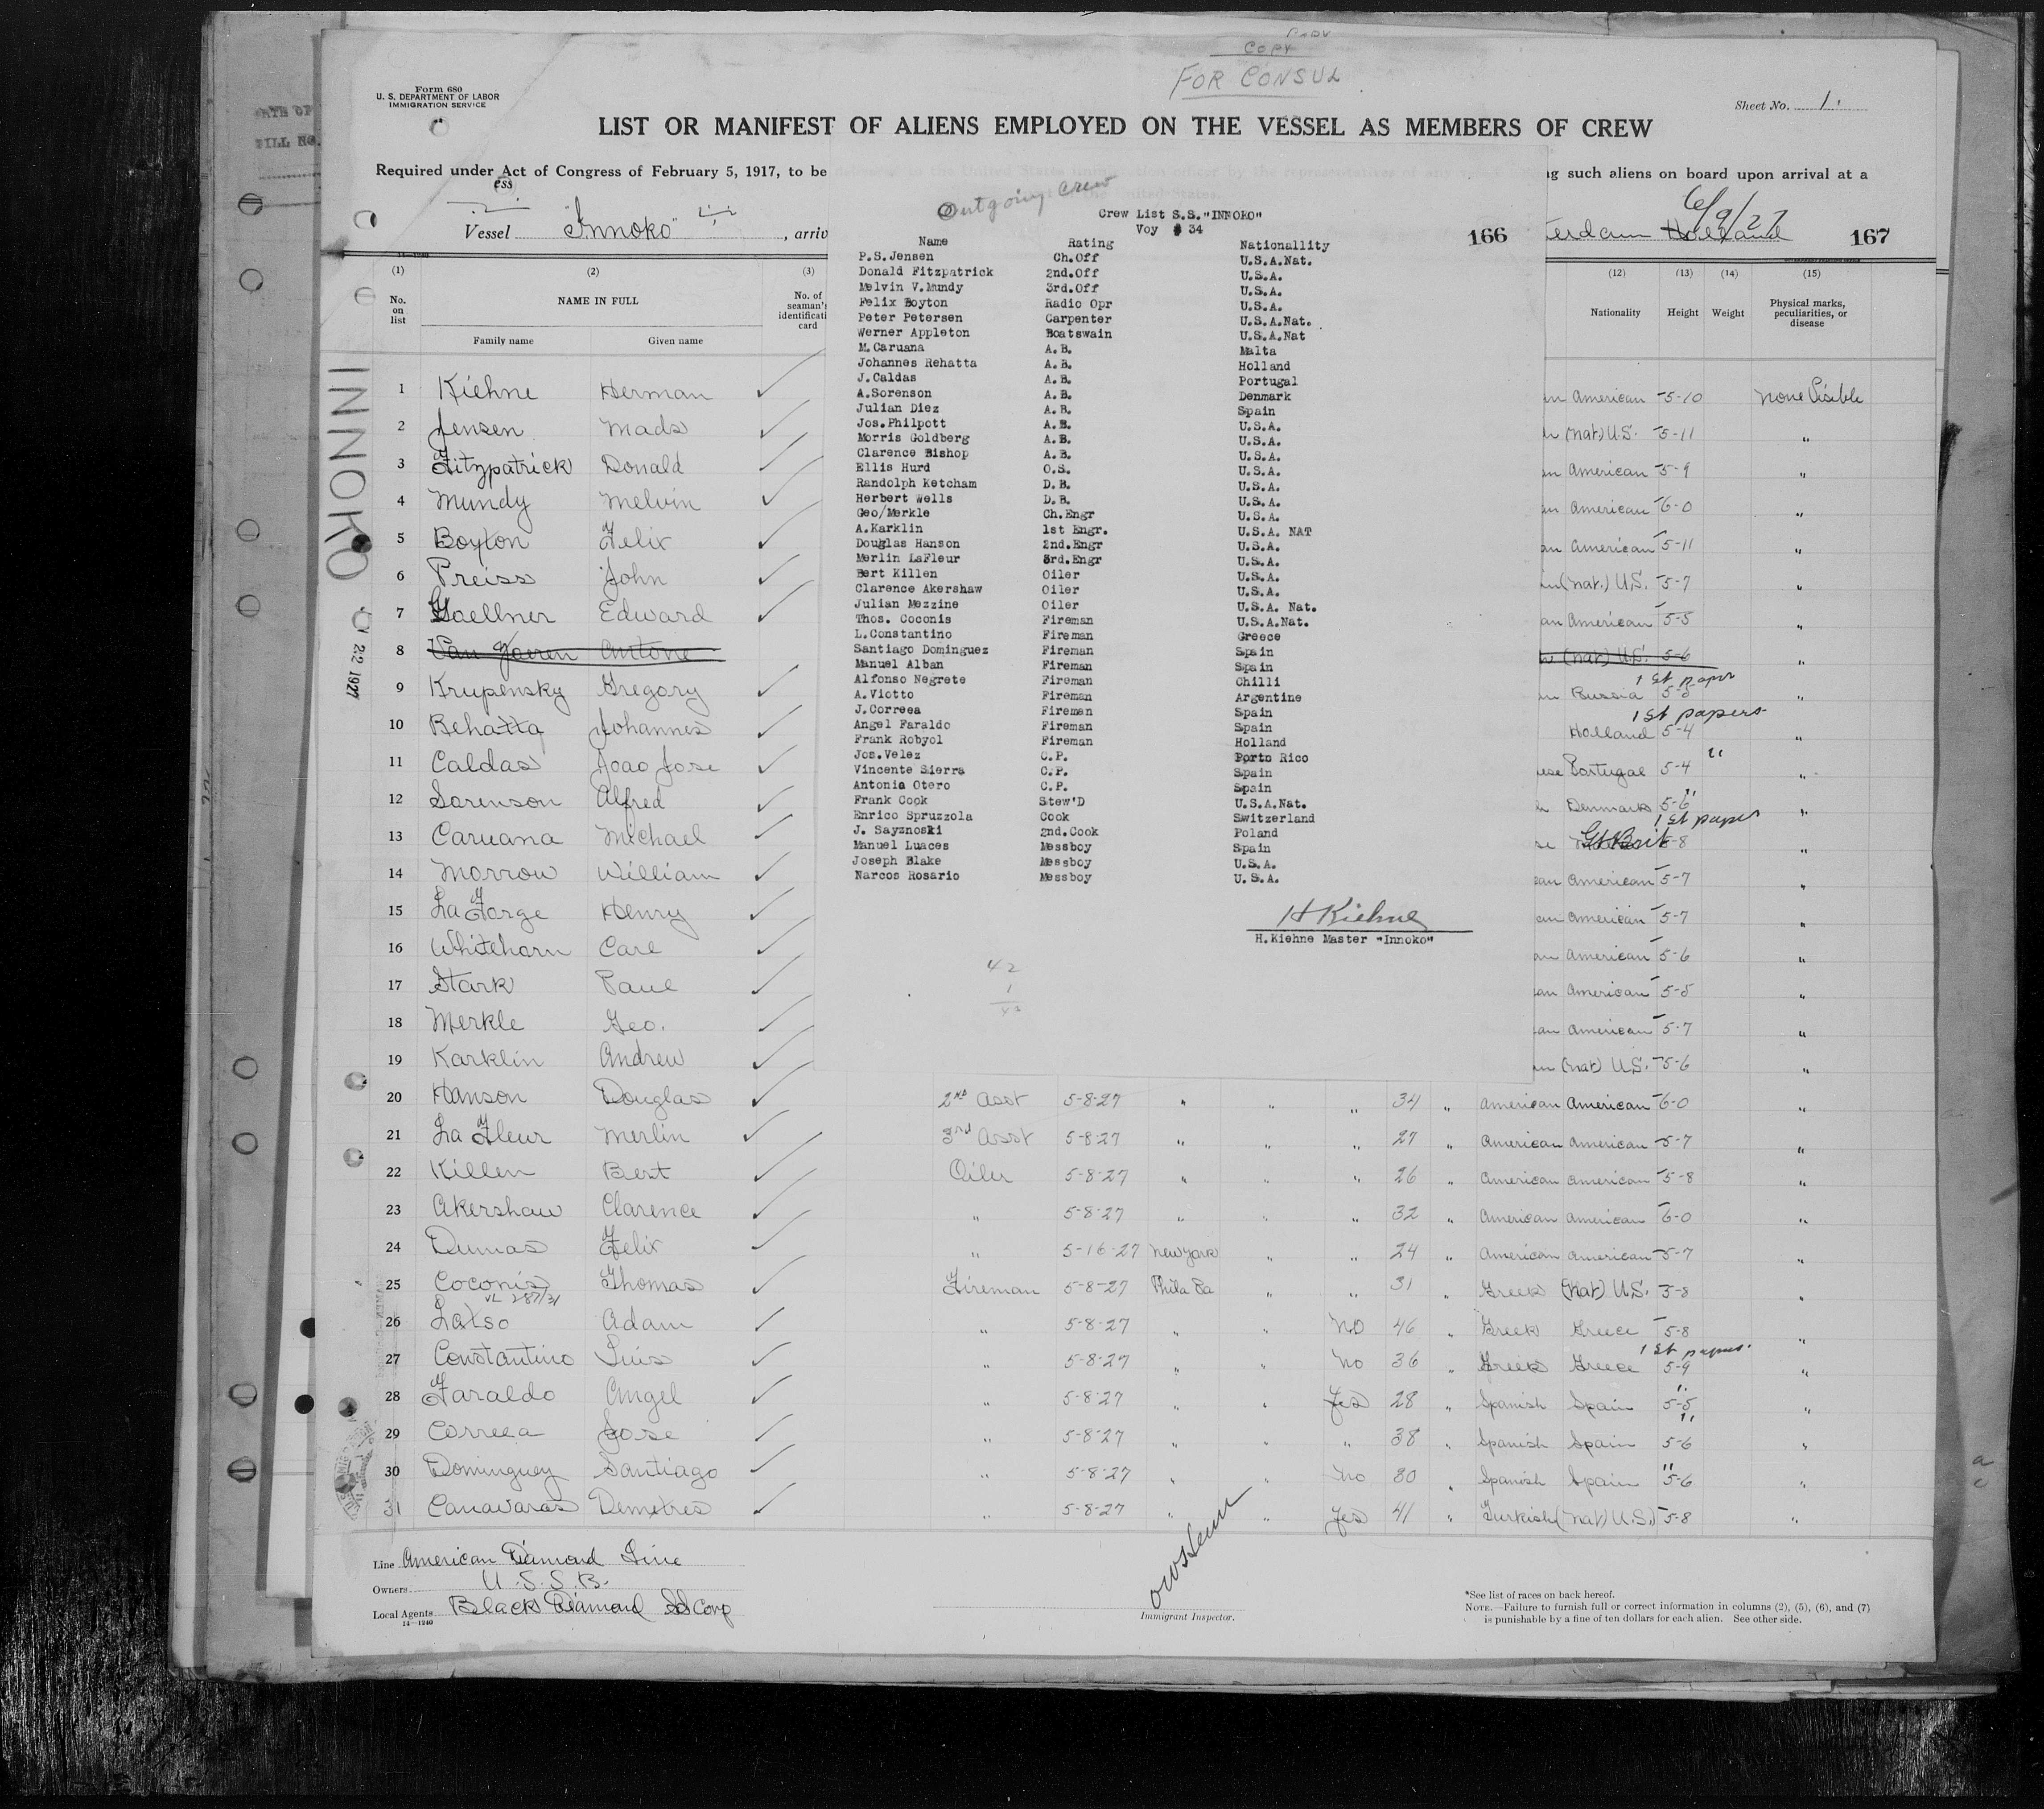 COPY
FOR CONSUL
Form 680
U. S. DEPARTMENT OF LABOR
IMMIGRATION SERVICE
Sheet No. 1
LIST OR MANIFEST OF ALIENS EMPLOYED ON THE VESSEL AS MEMBERS OF CREW
Required under Act of Congress of February 5, 1917, to be
ng such aliens on board upon arrival at a
ess
Vessel "Innoko", arriv
terdam Holland
6/9/27
166
167
Outgoing Crew
Crew List S.S."INNOKO"
Voy # 34
Name Rating Nationallity
P.S.Jensen Ch.Off U.S.A.Nat.
Donald Fitzpatrick 2nd.Off U.S.A.
Melvin V.Mundy 3rd.Off U.S.A.
Felix Boyton Radio Opr U.S.A.
Peter Petersen Carpenter U.S.A.Nat.
Werner Appleton Boatswain U.S.A.Nat
M.Caruana A.B. Malta
Johannes Rehatta A.B. Holland
J.Caldas A.B. Portugal
A.Sorenson A.B. Denmark
Julian Diez A.B. Spain
Jos.Philpott A.B. U.S.A.
Morris Goldberg A.B. U.S.A.
Clarence Bishop A.B. U.S.A.
Ellis Hurd O.S. U.S.A.
Randolph Ketcham D.B. U.S.A.
Herbert Wells D.B. U.S.A.
Geo/Merkle Ch.Engr U.S.A.
A.Karklin 1st Engr. U.S.A. NAT
Douglas Hanson 2nd.Engr U.S.A.
Merlin LaFleur 3rd.Engr U.S.A.
Bert Killen Oiler U.S.A.
Clarence Akershaw Oiler U.S.A.
Julian Mezzine Oiler U.S.A. Nat.
Thos. Coconis Fireman U.S.A.Nat.
L.Constantino Fireman Greece
Santiago Dominguez Fireman Spain
Manuel Alban Fireman Spain
Alfonso Negrete Fireman Chilli
A.Viotto Fireman Argentine
J.Correea Fireman Spain
Angel Faraldo Fireman Spain
Frank Robyol Fireman Holland
Jos.Velez C.P. Porto Rico
Vincente Sierra C.P. Spain
Antonia Otero C.P. Spain
Frank Cook Stew'D U.S.A.Nat.
Enrico Spruzzola Cook Switzerland
J. Sayznoski 2nd.Cook Poland
Manuel Luaces Messboy Spain
Joseph Blake Messboy U.S.A.
Narcos Rosario Messboy U.S.A.
H Kiehne
H.Kiehne Master "Innoko"
42
1
INNOKO
22 1927
(1) (2) (3) (12) (13) (14) (15)
No. on list
NAME IN FULL
Family name Given name
No. of seaman's identificati card
Nationality Height Weight Physical marks, peculiarities, or disease
1 Kiehne Herman an American 5-10 none Visible
2 Jensen Mads (nat) U.S. 5-11 "
3 Fitzpatrick Donald an American 5-9 "
4 Mundy Melvin an American 6-0 "
5 Boyton Felix an American 5-11 "
6 Preiss John (nat.) U.S. 5-7 "
7 Gaellner Edward an American 5-5 "
8 Van Antone (nat) U.S. 5-6 "
9 Krupensky Gregory Russia 5-8 1st paper "
10 Rehatta Johannes Holland 5-4 1st papers "
11 Caldas Joao Jose ese Portugal 5-4 " "
12 Sorenson Alfred Denmark 5-6 " "
13 Caruana Michael se Gt. Brit 5-8 1st paper "
14 Morrow William an American 5-7 "
15 La Forge Henry an American 5-7 "
16 Whitehorn Carl an American 5-6 "
17 Stark Paul an American 5-5 "
18 Merkle Geo. an American 5-7 "
19 Karklin Andrew (nat) U.S. 5-6 "
20 Hanson Douglas 2nd Asst 5-8-27 " " " 34 " American American 6-0 "
21 La Fleur Merlin 3rd Asst 5-8-27 " " " 27 " American American 5-7 "
22 Killen Bert Oiler 5-8-27 " " " 26 " American American 5-8 "
23 Akershaw Clarence " 5-8-27 " " " 32 " American American 6-0 "
24 Dumas Felix " 5-16-27 New York " " 24 " American American 5-7 "
25 Coconis Thomas Fireman 5-8-27 Phila Pa " " 31 " Greek (Nat) U.S. 5-8 "
26 Latso Adam " 5-8-27 " " No 46 " Greek Greece 5-8 "
27 Constantino Luis " 5-8-27 " " No 36 " Greek Greece 5-9 1st papers "
28 Faraldo Angel " 5-8-27 " " Yes 28 " Spanish Spain 5-5 " "
29 Correea Jose " 5-8-27 " " " 38 " Spanish Spain 5-6 " "
30 Dominguez Santiago " 5-8-27 " " No 30 " Spanish Spain 5-6 " "
31 Canavaras Demetres " 5-8-27 " " Yes 41 " Turkish (Nat) U.S. 5-8 "
Line American Diamond Line
Owners U.S.S.B.
Local Agents Black Diamond SS Corp
14—1240
Immigrant Inspector.
*See list of races on back hereof.
NOTE.—Failure to furnish full or correct information in columns (2), (5), (6), and (7)
is punishable by a fine of ten dollars for each alien. See other side.